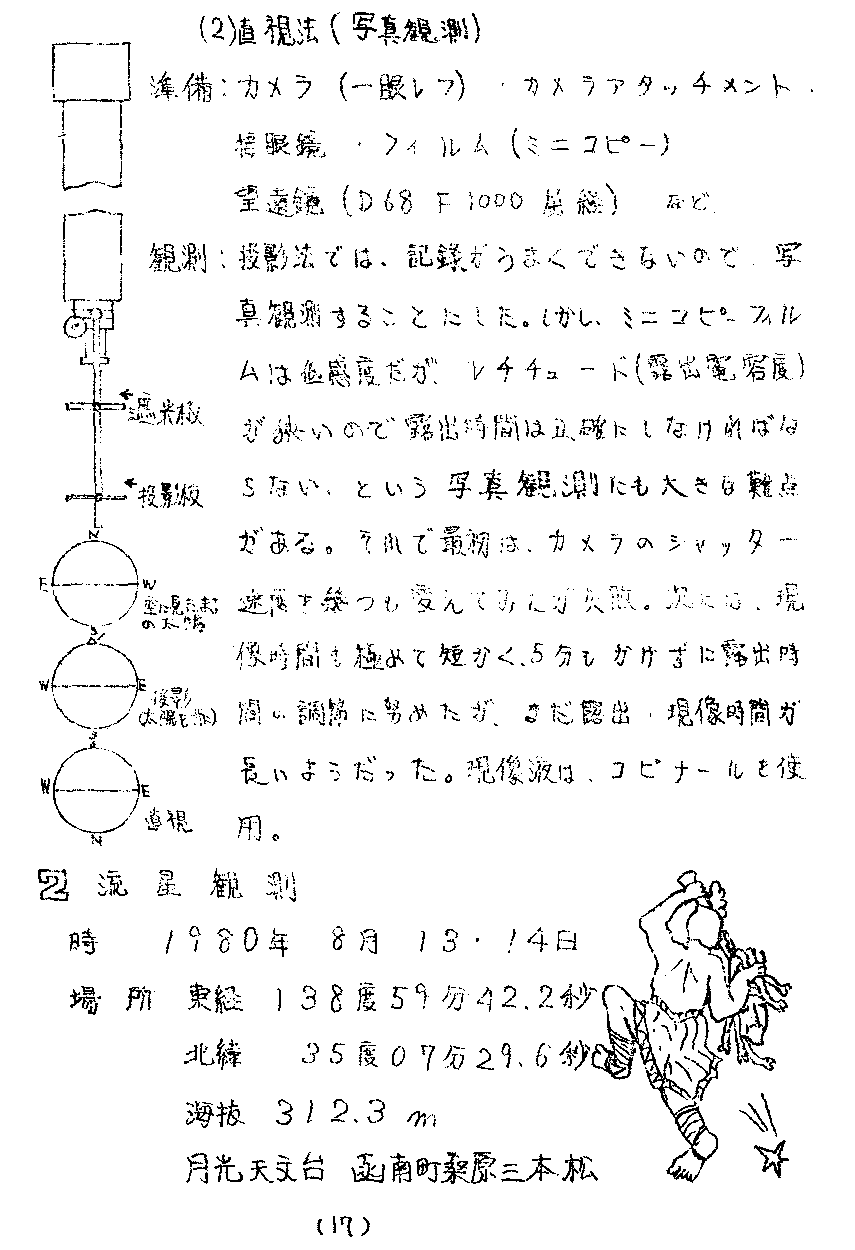 (2)直視法(写真観測)
準備:カメラ(一眼レフ)・カメラアタッチメント・
接眼鏡・フィルム(ミニコピー)
望遠鏡(D68 F1000 屈経)など
観測:投影法では、記録がうまくできないので、写
真観測することにした。しかし、ミニコピーフィル
ムは低感度だが、レチチュード(露出寛容度)
が狭いので露出時間は正確にしなければな
らない、という写真観測にも大きな難点
がある。それで最初は、カメラのシャッター
速度を幾つも変えてみたが失敗。次には、現
像時間を極めて短かく、5分もかけずに露出時
間の調節に努めたが、まだ露出・現像時間が
長いようだった。現像液は、コピナールを使
用。
遮光板
投影板
N
E W
空に見たまま
の太陽
S
W E
投影
N
S
W E
直視
N
2 流星観測
時 1980年 8月 13・14日
場所 東経 138度59分42.2秒
北緯 35度07分29.6秒
海抜 312.3 m
月光天文台 函南町桑原三本松
(17)